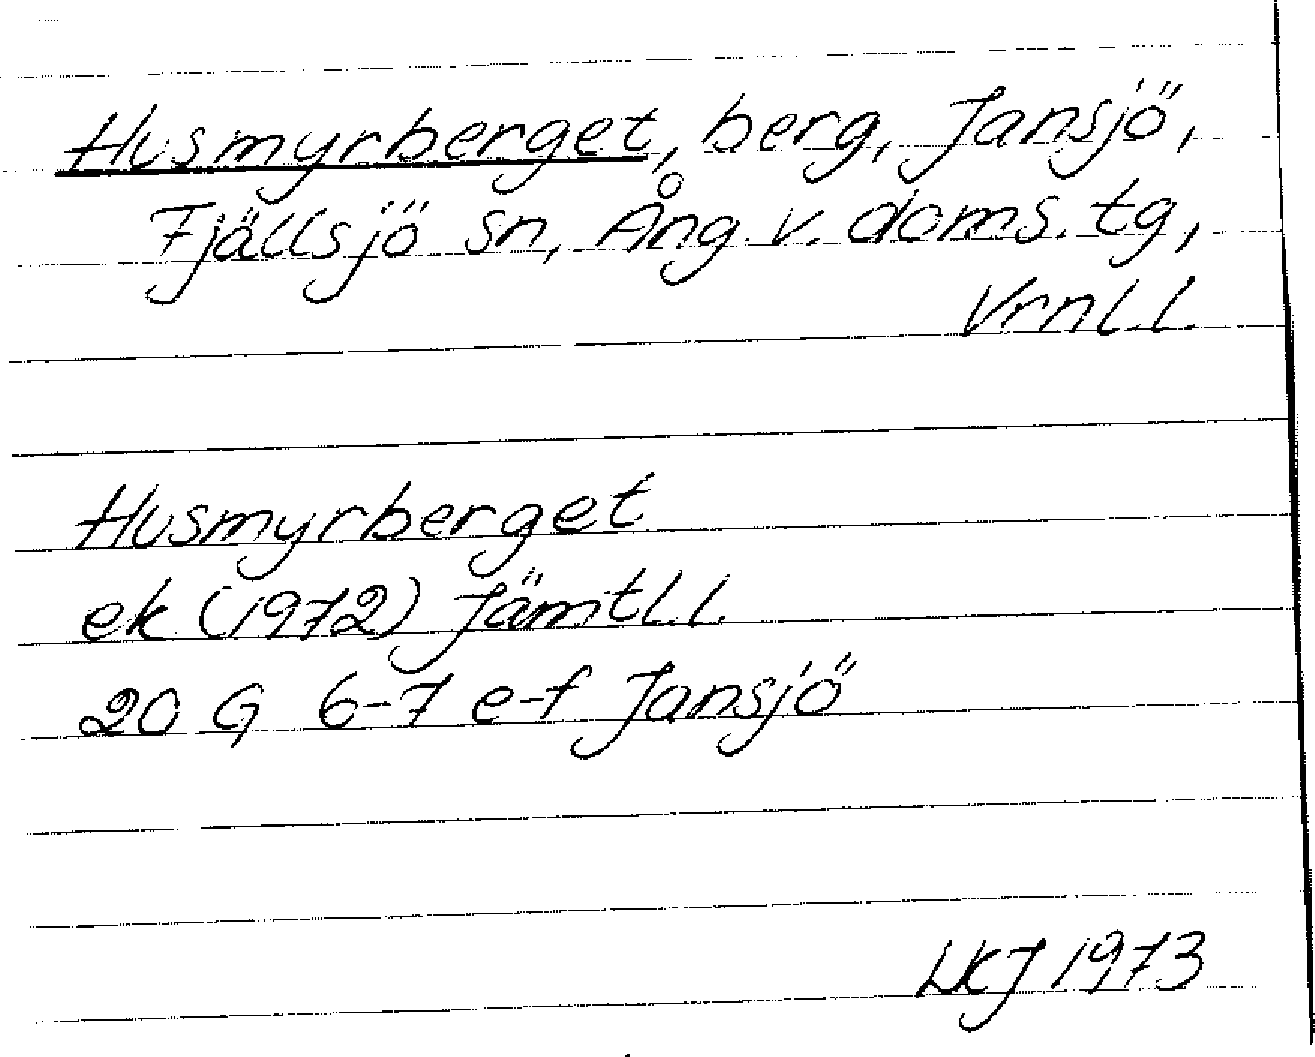 Husmyrberget, berg, Jansjö,
Fjällsjö sn, Ång v. doms. tg,
Vrnl.l.
Husmyrberget
ek (1972) Jämtl.l.
20 G 6-7 e-f Jansjö
LKJ 1973